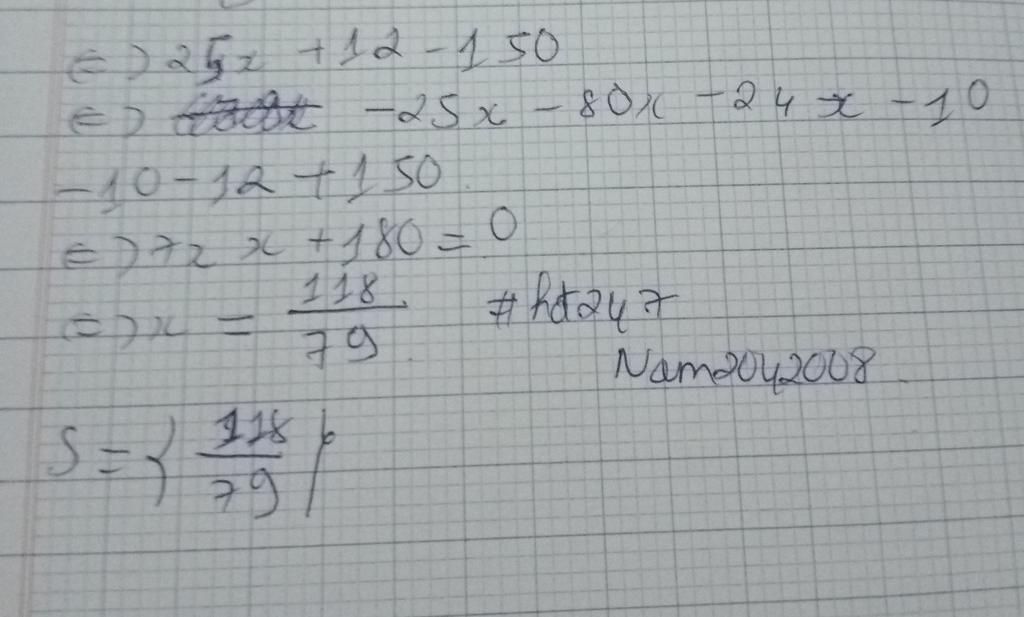 ⇔ 25x + 12 - 150
⇔ -25x - 80x - 24x - 10
-10 - 12 + 150
⇔ 72x + 180 = 0
⇔ x = 118/79 #hd247
Nam2042008
S = { 118/79 }